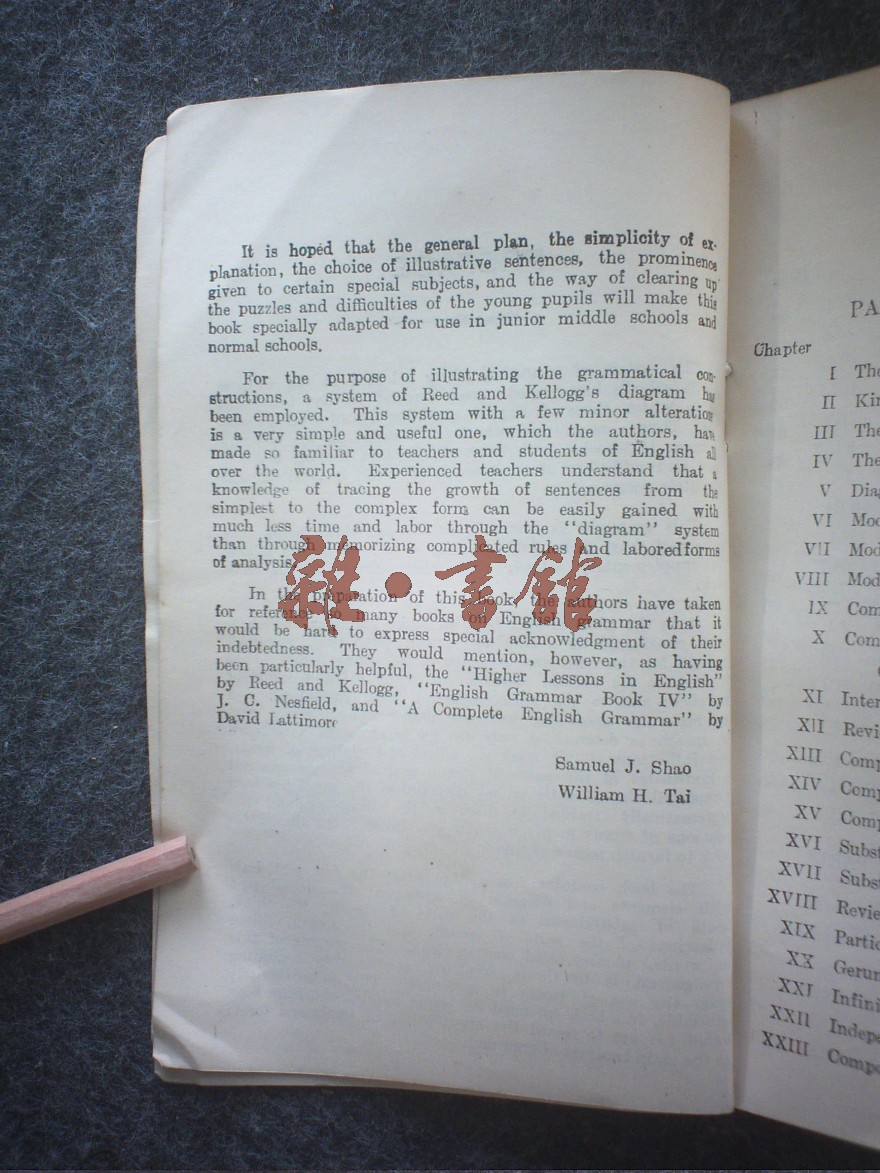 It is hoped that the general plan, the simplicity of ex-
planation, the choice of illustrative sentences, the prominence
given to certain special subjects, and the way of clearing up
the puzzles and difficulties of the young pupils will make this
book specially adapted for use in junior middle schools and
normal schools.
For the purpose of illustrating the grammatical con-
structions, a system of Reed and Kellogg's diagram has
been employed. This system with a few minor alterations
is a very simple and useful one, which the authors, have
made so familiar to teachers and students of English all
over the world. Experienced teachers understand that a
knowledge of tracing the growth of sentences from the
simplest to the complex form can be easily gained with
much less time and labor through the "diagram" system
than through memorizing complicated rules and labored forms
of analysis
In the preparation of this book, the authors have taken
for reference so many books on English grammar that it
would be hard to express special acknowledgment of their
indebtedness. They would mention, however, as having
been particularly helpful, the "Higher Lessons in English"
by Reed and Kellogg, "English Grammar Book IV" by
J. C. Nesfield, and "A Complete English Grammar" by
David Lattimore
Samuel J. Shao
William H. Tai
雜·書館
PA
Chapter
I The
II Kin
III The
IV The
V Dia
VI Mod
VII Mod
VIII Mod
IX Com
X Com
XI Inter
XII Revi
XIII Comp
XIV Comp
XV Comp
XVI Subst
XVII Subst
XVIII Revie
XIX Partic
XX Gerun
XXI Infini
XXII Indep
XXIII Compo